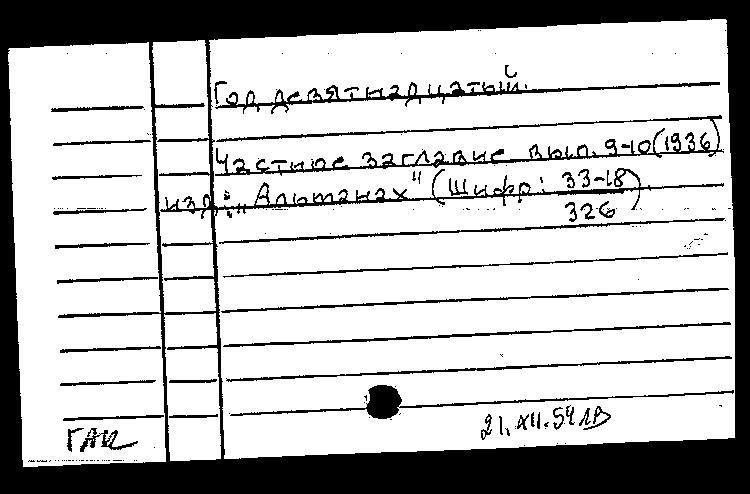 Год девятнадцатый.
Частное заглавие вып. 9-10 (1936)
изд.: „Альманах" (Шифр: 33-18/326).
21.XII.59